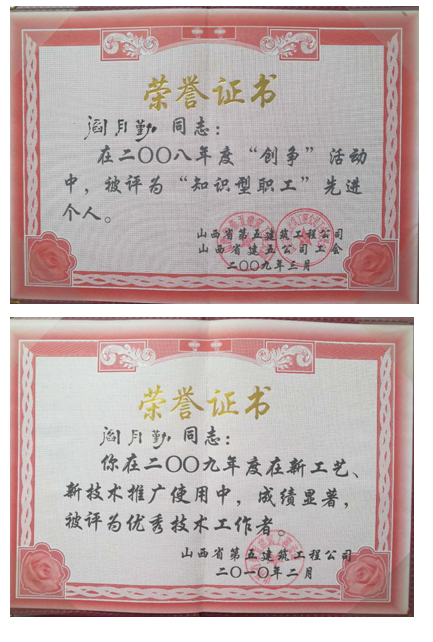 荣誉证书
阎月勤 同志：
在二〇〇八年度“创争”活动
中，被评为“知识型职工”先进
个人。
山西省第五建筑工程公司
山西省建五公司工会
二〇〇九年三月
荣誉证书
阎月勤 同志：
你在二〇〇九年度在新工艺、
新技术推广使用中，成绩显著，
被评为优秀技术工作者。
山西省第五建筑工程公司
二〇一〇年二月